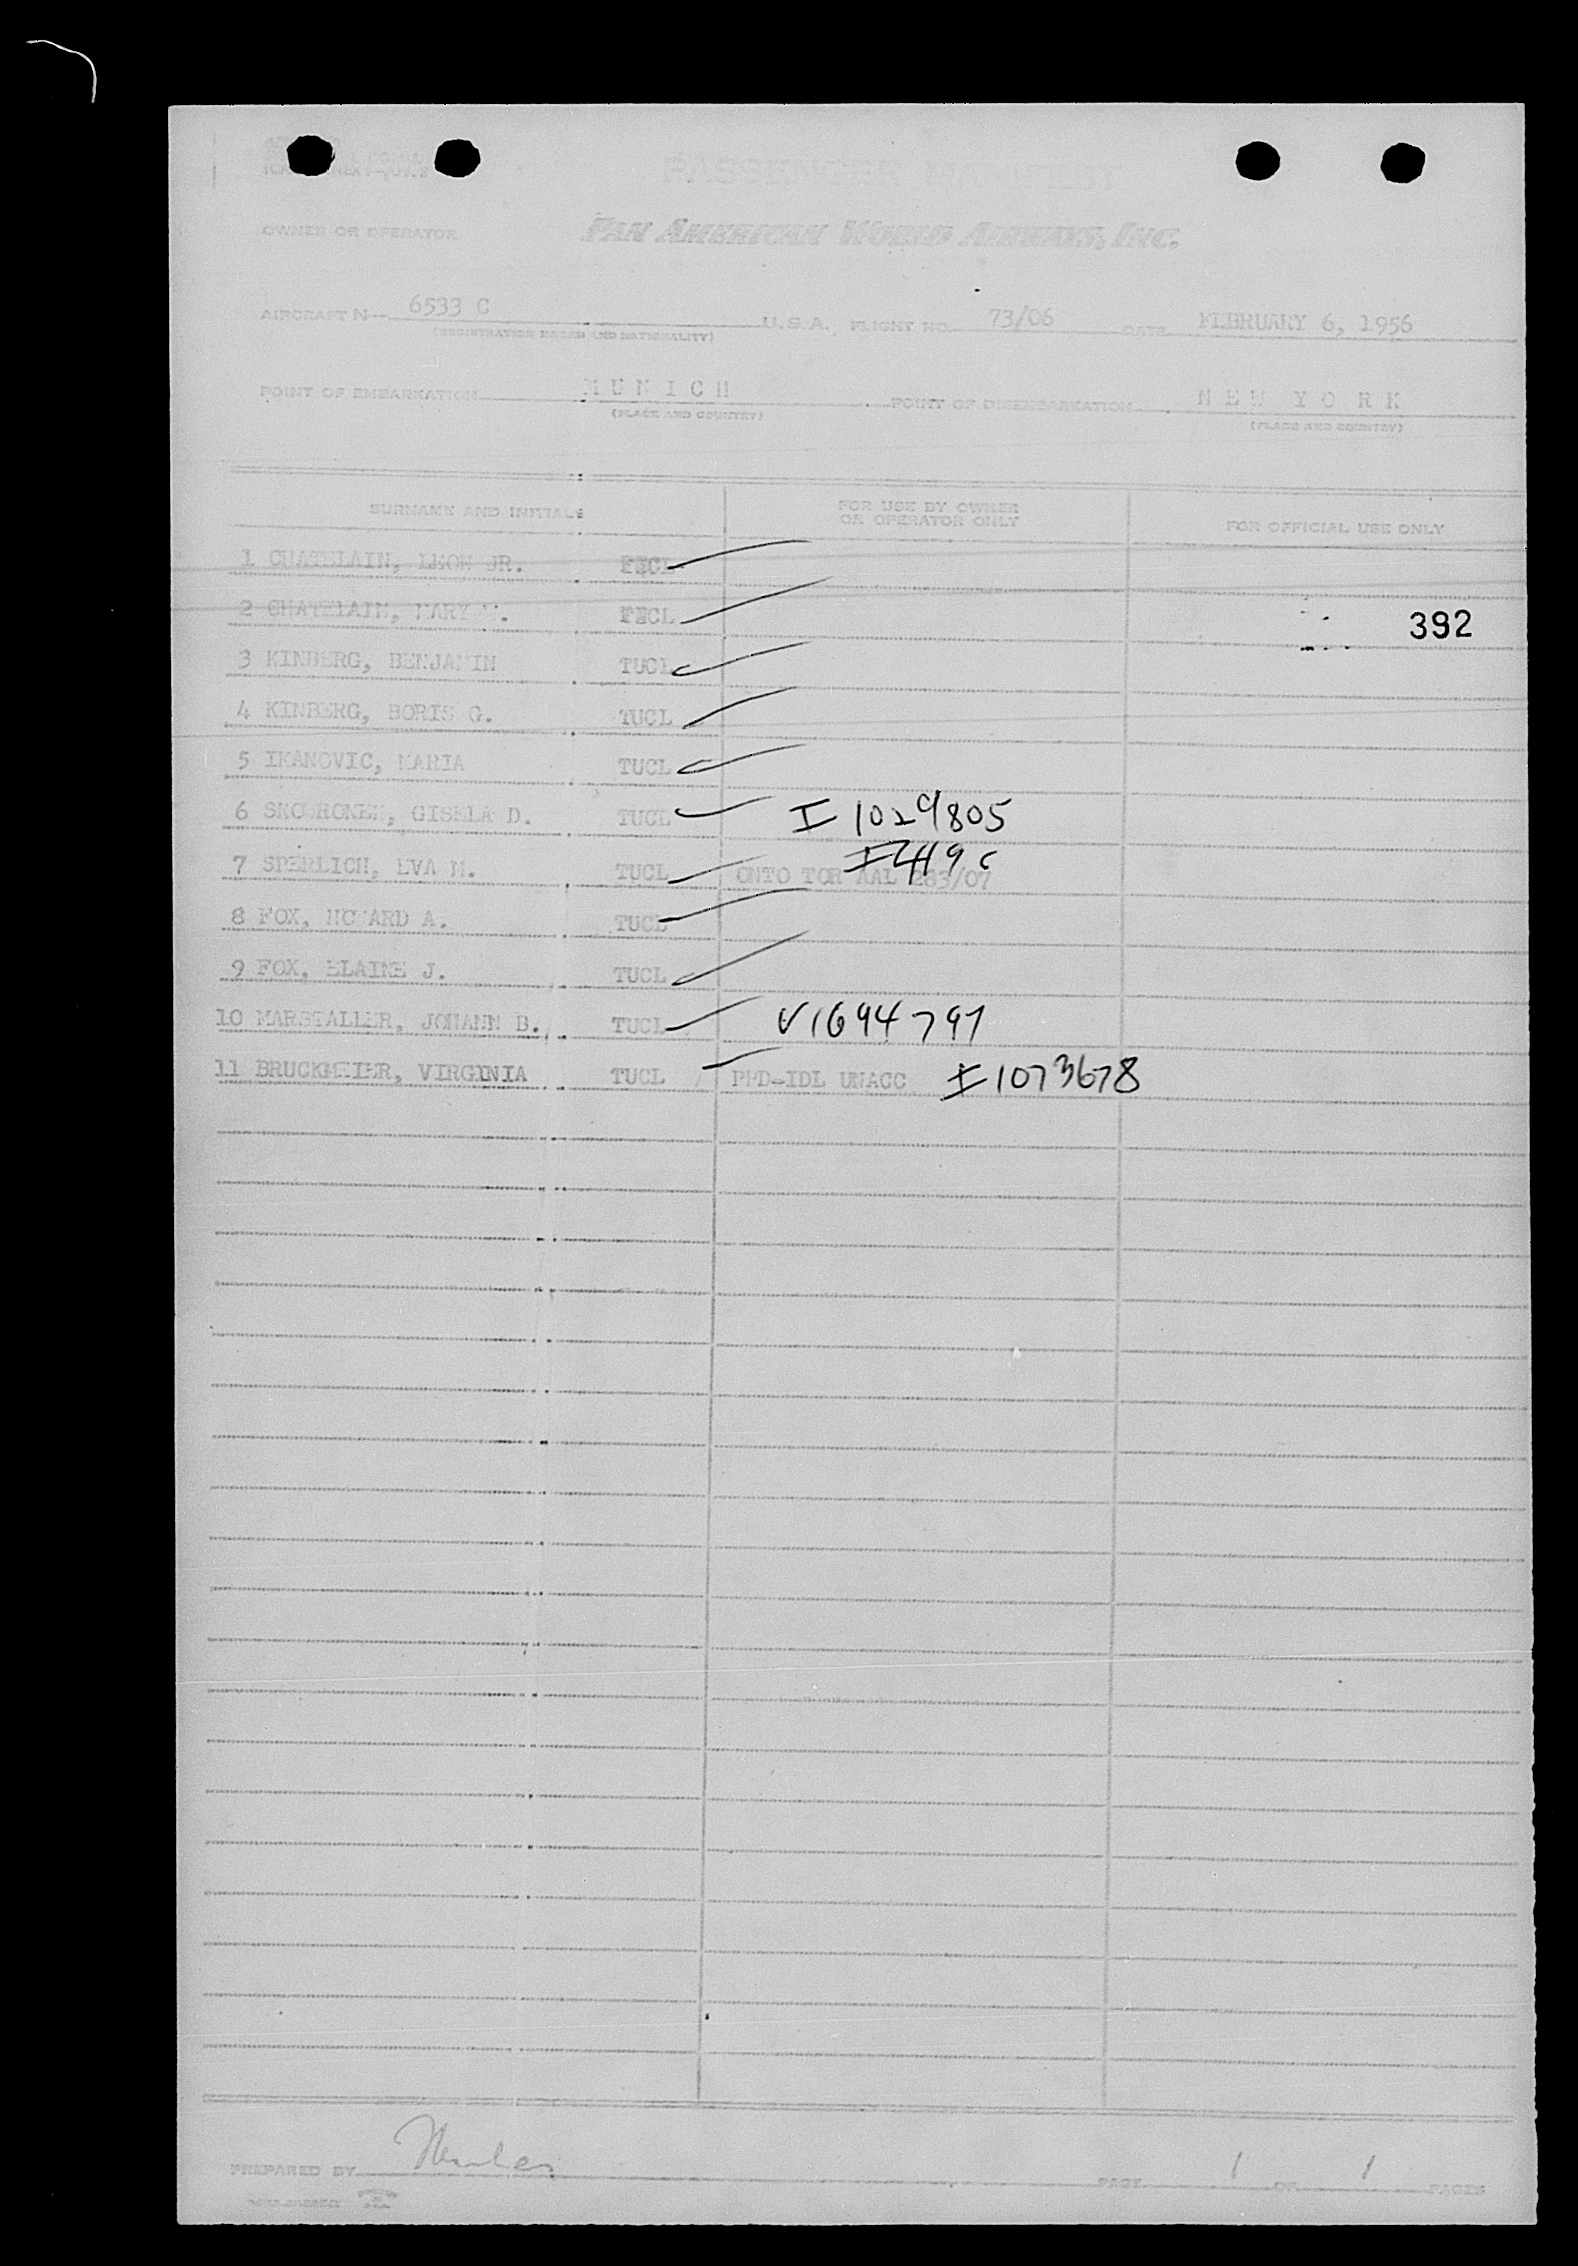 PASSENGER MANIFEST
OWNER OR OPERATOR PAN AMERICAN WORLD AIRWAYS, INC.
AIRCRAFT N 6533 C U.S.A. FLIGHT NO. 73/06 DATE FEBRUARY 6, 1956
(REGISTRATION MARKS AND NATIONALITY)
POINT OF EMBARKATION MUNICH POINT OF DISEMBARKATION NEW YORK
(PLACE AND COUNTRY) (PLACE AND COUNTRY)
SURNAME AND INITIALS FOR USE BY OWNER OR OPERATOR ONLY FOR OFFICIAL USE ONLY
1 CHATELAIN, LEON JR. FECL
2 CHATELAIN, MARY FECL 392
3 KINBERG, BENJAMIN TUCL
4 KINBERG, BORIS G. TUCL
5 IKANOVIC, MARIA TUCL
6 GISELA D. TUCL I 1029805
7 SPERLICH, EVA M. TUCL ONTO TOR AAL 283/07
8 FOX, HOWARD A. TUCL
9 FOX, ELAINE J. TUCL
10 MARSTALLER, JOHANN B. TUCL V1694797
11 BRUCKMEIER, VIRGINIA TUCL PPD-IDL UNACC I 1073678
PREPARED BY PAGE 1 OF 1 PAGES